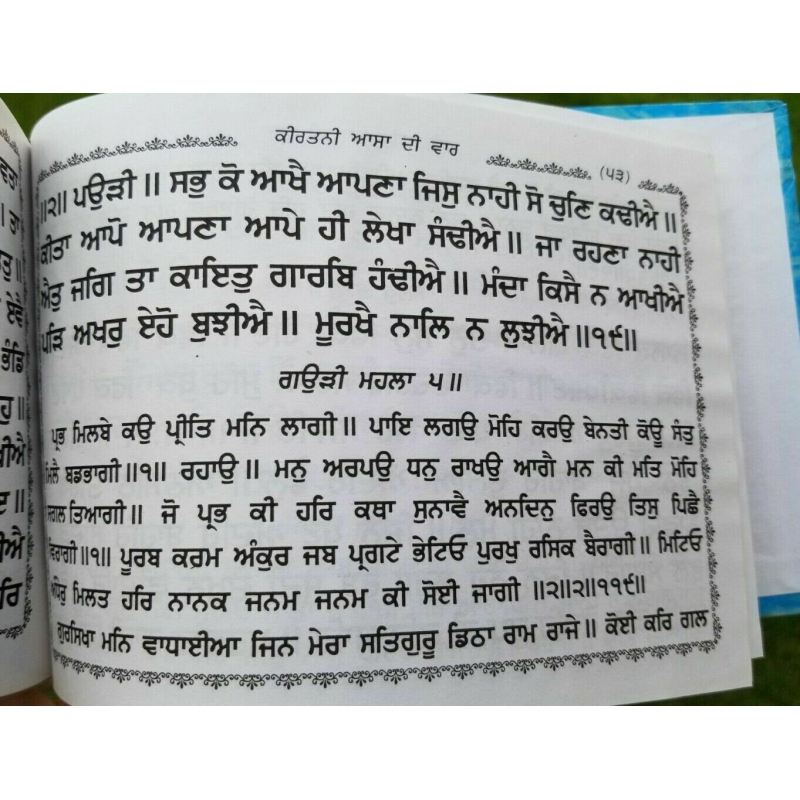 ਕੀਰਤਨੀ ਆਸਾ ਦੀ ਵਾਰ
(੫੩)
॥੨॥ ਪਉੜੀ ॥ ਸਭੁ ਕੋ ਆਖੈ ਆਪਣਾ ਜਿਸੁ ਨਾਹੀ ਸੋ ਚੁਣਿ ਕਢੀਐ ॥
ਕੀਤਾ ਆਪੋ ਆਪਣਾ ਆਪੇ ਹੀ ਲੇਖਾ ਸੰਢੀਐ ॥ ਜਾ ਰਹਣਾ ਨਾਹੀ
ਐਤੁ ਜਗਿ ਤਾ ਕਾਇਤੁ ਗਾਰਬਿ ਹੰਢੀਐ ॥ ਮੰਦਾ ਕਿਸੈ ਨ ਆਖੀਐ
ਪੜਿ ਅਖਰੁ ਏਹੋ ਬੁਝੀਐ ॥ ਮੂਰਖੈ ਨਾਲਿ ਨ ਲੁਝੀਐ ॥੧੯॥
ਗਉੜੀ ਮਹਲਾ ੫ ॥
ਪ੍ਰਭ ਮਿਲਬੇ ਕਉ ਪ੍ਰੀਤਿ ਮਨਿ ਲਾਗੀ ॥ ਪਾਇ ਲਗਉ ਮੋਹਿ ਕਰਉ ਬੇਨਤੀ ਕੋਊ ਸੰਤੁ
ਮਿਲੈ ਬਡਭਾਗੀ ॥੧॥ ਰਹਾਉ ॥ ਮਨੁ ਅਰਪਉ ਧਨੁ ਰਾਖਉ ਆਗੈ ਮਨ ਕੀ ਮਤਿ ਮੋਹਿ
ਸਗਲ ਤਿਆਗੀ ॥ ਜੋ ਪ੍ਰਭ ਕੀ ਹਰਿ ਕਥਾ ਸੁਨਾਵੈ ਅਨਦਿਨੁ ਫਿਰਉ ਤਿਸੁ ਪਿਛੈ
ਵਿਰਾਗੀ ॥੧॥ ਪੂਰਬ ਕਰਮ ਅੰਕੁਰ ਜਬ ਪ੍ਰਗਟੇ ਭੇਟਿਓ ਪੁਰਖੁ ਰਸਿਕ ਬੈਰਾਗੀ ॥ ਮਿਟਿਓ
ਅੰਧੇਰੁ ਮਿਲਤ ਹਰਿ ਨਾਨਕ ਜਨਮ ਜਨਮ ਕੀ ਸੋਈ ਜਾਗੀ ॥੨॥੨॥੧੧੯॥
ਗੁਰਸਿਖਾ ਮਨਿ ਵਾਧਾਈਆ ਜਿਨ ਮੇਰਾ ਸਤਿਗੁਰੂ ਡਿਠਾ ਰਾਮ ਰਾਜੇ ॥ ਕੋਈ ਕਰਿ ਗਲ